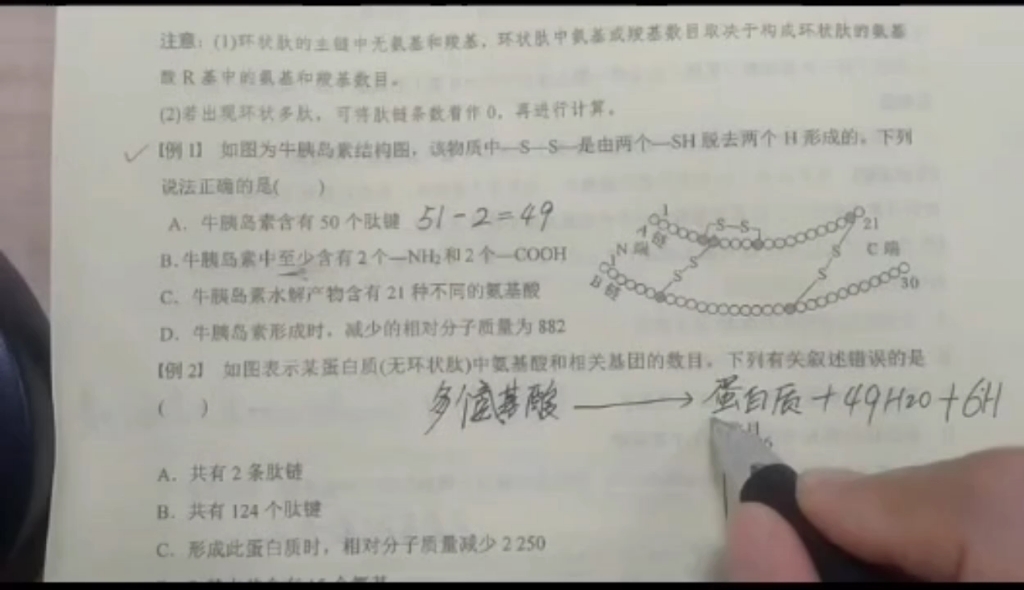 注意：(1)环状肽的主链中无氨基和羧基，环状肽中氨基或羧基数目取决于构成环状肽的氨基
酸 R 基中的氨基和羧基数目。
(2)若出现环状多肽，可将肽链条数看作 0，再进行计算。
✓【例 1】 如图为牛胰岛素结构图，该物质中—S—S—是由两个—SH 脱去两个 H 形成的。下列
说法正确的是(  )
A．牛胰岛素含有 50 个肽键 51-2=49
B．牛胰岛素中至少含有 2 个—NH₂和 2 个—COOH
C．牛胰岛素水解产物含有 21 种不同的氨基酸
D．牛胰岛素形成时，减少的相对分子质量为 882
1
A 链
S—S
21
N 端
S
S
S
S
C 端
1
B 链
30
【例 2】 如图表示某蛋白质(无环状肽)中氨基酸和相关基团的数目。下列有关叙述错误的是
(  )
多个氨基酸 ⟶ 蛋白质+49H2O+6H
A．共有 2 条肽链
B．共有 124 个肽键
C．形成此蛋白质时，相对分子质量减少 2 250